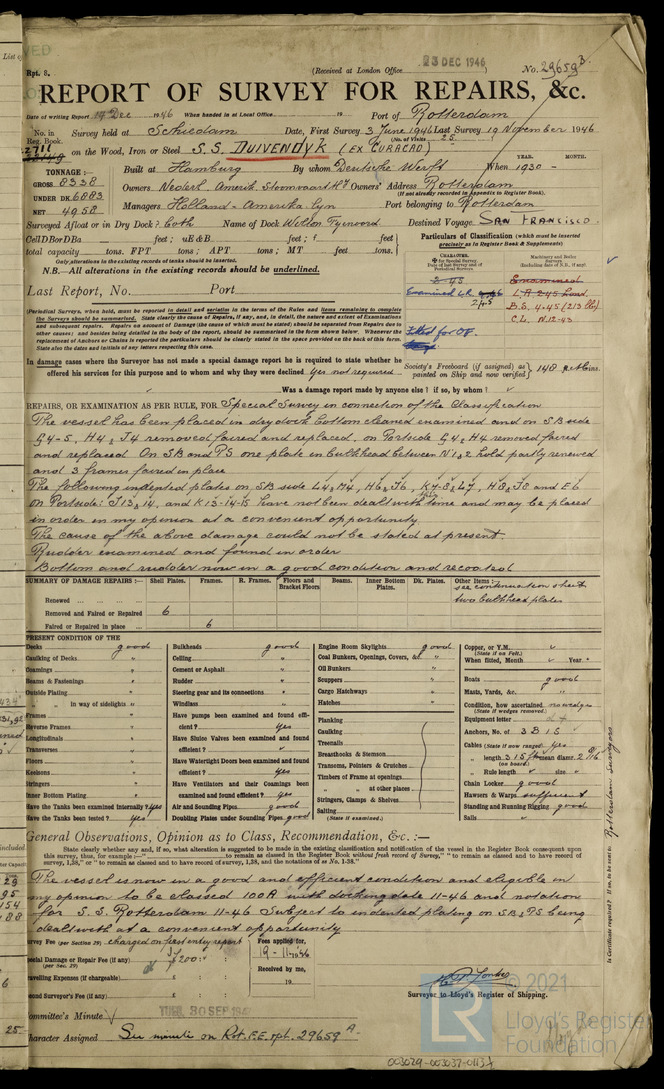 Rpt. 8.
(Received at London Office 23 DEC 1946)
No. 29659 B.
REPORT OF SURVEY FOR REPAIRS, &c.
Date of writing Report 19 Dec 1946 When handed in at Local Office 19 Port of Rotterdam
No. in Reg. Book. Survey held at Schiedam Date, First Survey 3 June 1946 Last Survey 19 November 1946
(No. of Visits 25)
2711 on the Wood, Iron or Steel S.S. DUIVENDYK (EX CURACAO)
TONNAGE:—
GROSS 8338
UNDER DK. 6883
NET 4958
Built at Hamburg By whom Deutsche Werft When 1930 –
YEAR. MONTH.
Owners Nederl. Amerik. Stoomvaart Owners' Address Rotterdam
(If not already recorded in Appendix to Register Book).
Managers Holland-Amerika Lyn Port belonging to Rotterdam
Surveyed Afloat or in Dry Dock? both Name of Dock Wilton Fijenoord Destined Voyage SAN FRANCISCO.
Cell D Bor DBa feet; uE&B. feet; f feet
total capacity tons. FPT tons; APT tons; MT feet tons.
Only alterations in the existing records of tanks should be inserted.
N.B.—All alterations in the existing records should be underlined.
Particulars of Classification (which must be inserted precisely as in Register Book & Supplements)
Last Report, No. Port
B.S. 4.45 (213 lbs)
C.L. N.12-43
Fitted for OF.
(Periodical Surveys, when held, must be reported in detail and seriatim in the terms of the Rules and items remaining to complete the Surveys should be summarised. State clearly the cause of Repairs, if any, and, in detail, the nature and extent of Examinations and subsequent repairs. Repairs on account of Damage (the cause of which must be stated) should be separated from Repairs due to other causes; and besides being detailed in the body of the report, should be summarised in the form shown below. Whenever the replacement of Anchors or Chains is reported the particulars should be clearly stated in the space provided on the back of this form. State also the dates and initials of any letters respecting this case.
In damage cases where the Surveyor has not made a special damage report he is required to state whether he offered his services for this purpose and to whom and why they were declined Yes not required
Society's Freeboard (if assigned) as painted on Ship and now verified
Was a damage report made by anyone else? if so, by whom?
REPAIRS, OR EXAMINATION AS PER RULE, FOR Special Survey in connection of the Classification
The vessel has been placed in dry dock bottom cleaned examined and on SB side
G4-5, H4, J4 removed faired and replaced, on Portside G4, H4 removed faired
and replaced On SB and PS one plate in bulkhead between N°1&2 hold partly renewed
and 3 frames faired in place
The following indented plates on SB side L4, M4, H6, J6, K7-8, L7, H8, J8 and E6
on Portside: J13, 14, and K13-14-15 have not been dealt with this time and may be placed
in order in my opinion at a convenient opportunity
The cause of the above damage could not be stated at present.
Rudder examined and found in order
Bottom and rudder now in a good condition and recoated
SUMMARY OF DAMAGE REPAIRS:— Shell Plates. Frames. R. Frames. Floors and Bracket Floors Beams. Inner Bottom Plates. Dk. Plates. Other Items:— see continuation sheet
Renewed two bulkhead plates
Removed and Faired or Repaired 6
Faired or Repaired in place 6
PRESENT CONDITION OF THE
Decks good
Caulking of Decks "
Coamings "
Beams & Fastenings "
Outside Plating "
" in way of sidelights "
Frames "
Reverse Frames "
Longitudinals "
Transverses "
Floors "
Keelsons "
Stringers "
Inner Bottom Plating "
Have the Tanks been examined internally? yes
Have the Tanks been tested? yes
Bulkheads good
Ceiling "
Cement or Asphalt "
Rudder "
Steering gear and its connections "
Windlass "
Have pumps been examined and found efficient? Yes
Have Sluice Valves been examined and found efficient?
Have Watertight Doors been examined and found efficient? Yes
Have Ventilators and their Coamings been examined and found efficient? Yes
Air and Sounding Pipes good
Doubling Plates under Sounding Pipes good
Engine Room Skylights good
Coal Bunkers, Openings, Covers, &c. "
Oil Bunkers "
Scuppers "
Cargo Hatchways "
Hatches "
Planking
Caulking
Treenails
Breasthooks & Stemson
Transoms, Pointers & Crutches
Timbers of Frame at openings
" " at other places
Stringers, Clamps & Shelves
Salting
(State if examined.)
Copper, or Y.M.
(State if on Felt.)
When fitted, Month Year
Boats good
Masts, Yards, &c. "
Condition, how ascertained no wedges
(State if wedges removed.)
Equipment letter
Anchors, No. of 3 B 1 S
Cables (State if now ranged) yes
" length 315 mean diamr. 2 9/16
(on board)
" Rule length size
Chain Locker good
Hawsers & Warps sufficient
Standing and Running Rigging good
Sails
General Observations, Opinion as to Class, Recommendation, &c.:—
State clearly whether any, and if so, what alteration is suggested to be made in the existing classification and notification of the vessel in the Register Book consequent upon this survey, thus, for example:—" to remain as classed in the Register Book without fresh record of Survey," " to remain as classed and to have record of survey, 1,38," or " to remain as classed and to have record of survey, 1,38, and the notations of ss No. 1-38."
The vessel is now in a good and efficient condition and eligible in
my opinion to be classed 100A with docking date 11-46 and notation
for S.S. Rotterdam 11-46 Subject to indented plating on SB & PS being
dealt with at a convenient opportunity
Survey Fee (per Section 29) charged on first entry report
Fees applied for, 19-11-1946
Special Damage or Repair Fee (if any) (per Sec. 29) 200:-
Received by me, 19
Travelling Expenses (if chargeable) £ : :
Second Surveyor's Fee (if any) £ : :
Surveyor to Lloyd's Register of Shipping.
Committee's Minute TUES. 30 SEP 1947
Character Assigned See minute on Rot. F.E. rpt. 29659 A.
Is Certificate required? If so, to be sent to Rotterdam Surveyors
© 2021
LR
Lloyd's Register
Foundation
003029-003037-0113